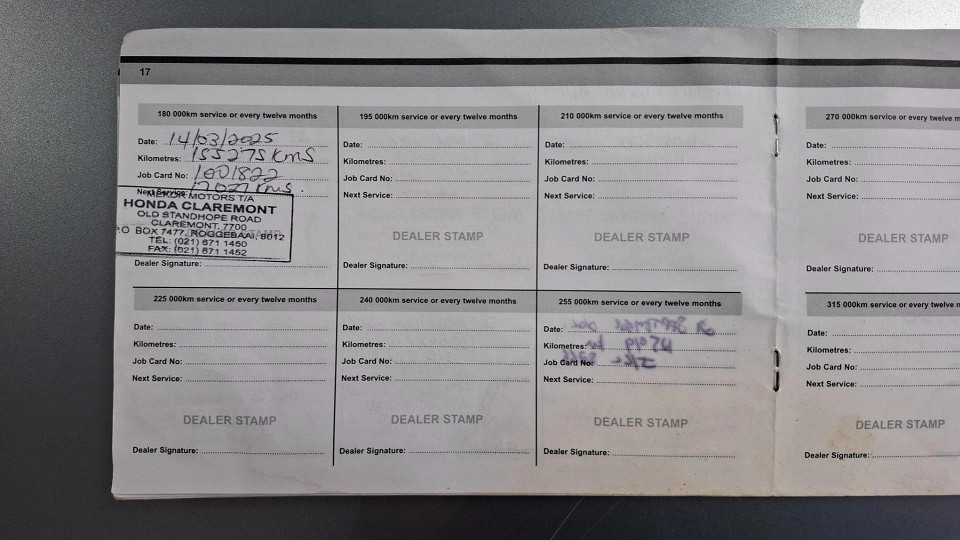 17
180 000km service or every twelve months
Date: 14/03/2025
Kilometres: 155275 kms
Job Card No: 1001822
Next Service: kms.
MEKOR MOTORS T/A
HONDA CLAREMONT
OLD STANDHOPE ROAD
CLAREMONT, 7700
P.O BOX 7477, ROGGEBAAI, 8012
TEL: (021) 671 1450
FAX: (021) 671 1452
Dealer Signature:
195 000km service or every twelve months
Date:
Kilometres:
Job Card No:
Next Service:
DEALER STAMP
Dealer Signature:
210 000km service or every twelve months
Date:
Kilometres:
Job Card No:
Next Service:
DEALER STAMP
Dealer Signature:
270 000km service or every twelve
Date:
Kilometres:
Job Card No:
Next Service:
DEALER STAMP
Dealer Signature:
225 000km service or every twelve months
Date:
Kilometres:
Job Card No:
Next Service:
DEALER STAMP
Dealer Signature:
240 000km service or every twelve months
Date:
Kilometres:
Job Card No:
Next Service:
DEALER STAMP
Dealer Signature:
255 000km service or every twelve months
Date:
Kilometres:
Job Card No:
Next Service:
DEALER STAMP
Dealer Signature:
315 000km service or every twelve
Date:
Kilometres:
Job Card No:
Next Service:
DEALER STAMP
Dealer Signature: